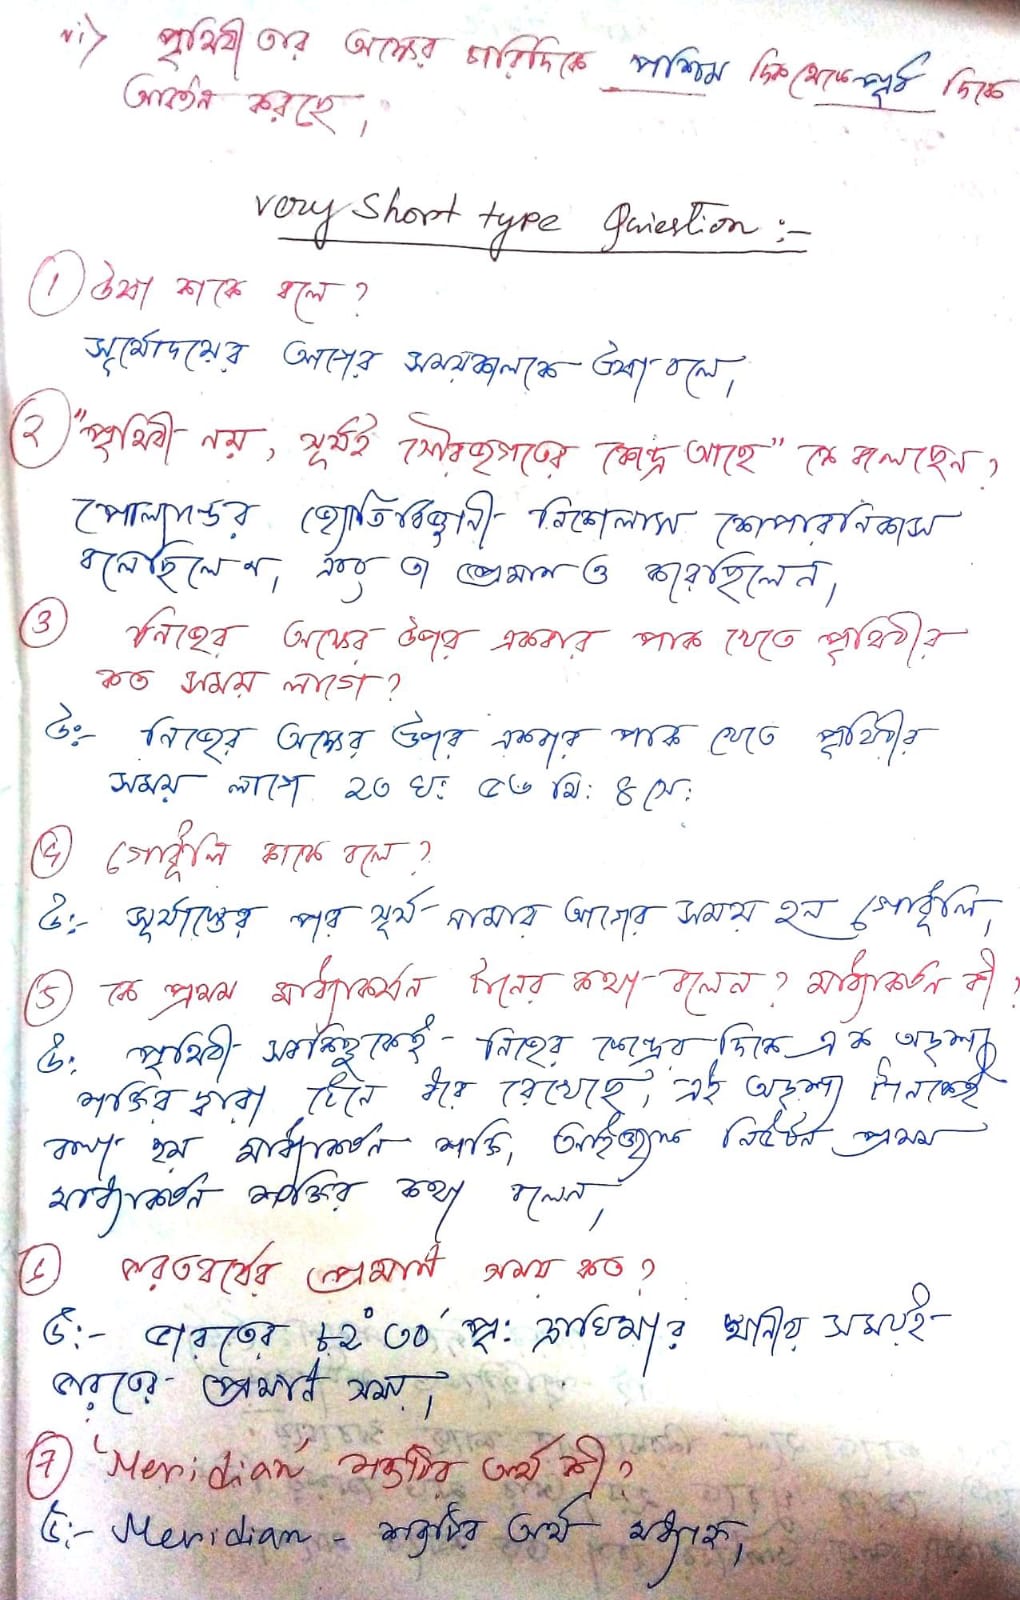 vi> পৃথিবী তার অক্ষের চারিদিকে পশ্চিম দিক থেকে পূর্ব দিকে
আবর্তন করছে।
very Short type Quiestion :-
① ঊষা কাকে বলে?
সূর্যোদয়ের আগের সময়কালকে ঊষা বলে।
② "পৃথিবী নয়, সূর্যই সৌরজগতের কেন্দ্রে আছে" কে বলেছেন?
পোল্যান্ডের জ্যোতির্বিজ্ঞানী নিকোলাস কোপারনিকাস
বলেছিলেন, এবং তা প্রমাণ ও করেছিলেন।
③ নিজের অক্ষের উপর একবার পাক খেতে পৃথিবীর
কত সময় লাগে?
উঃ- নিজের অক্ষের উপর একবার পাক খেতে পৃথিবীর
সময় লাগে ২৩ ঘঃ ৫৬ মিঃ ৪ সেঃ
④ গোধূলি কাকে বলে?
উঃ- সূর্যাস্তের পর সূর্য নামার আগের সময় হল গোধূলি।
⑤ কে প্রথম মাধ্যাকর্ষন টানের কথা বলেন? মাধ্যাকর্ষন কী?
উঃ পৃথিবী সবকিছুকেই নিজের কেন্দ্রের দিকে এক অদৃশ্য
শক্তির দ্বারা টেনে ধরে রেখেছে, এই অদৃশ্য টানকেই
বলা হয় মাধ্যাকর্ষন শক্তি, আইজ্যাক নিউটন প্রথম
মাধ্যাকর্ষন শক্তির কথা বলেন।
⑥ ভারতবর্ষের প্রমাণ সময় কত?
উঃ- ভারতের ৮২° ৩০' পূঃ দ্রাঘিমার স্থানীয় সময়ই
ভারতের প্রমাণ সময়।
⑦ 'Meridian' শব্দটির অর্থ কী?
উঃ- Meridian - শব্দটির অর্থ মধ্যাহ্ন।